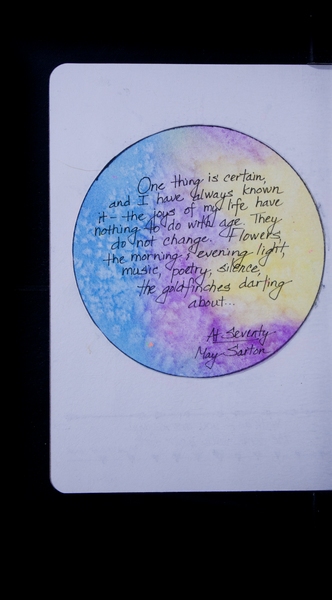 One thing is certain,
and I have always known
it -- the joys of my life have
nothing to do with age. They
do not change. Flowers,
the morning & evening light,
music, poetry, silence,
the goldfinches darting
about...
At Seventy
May Sarton